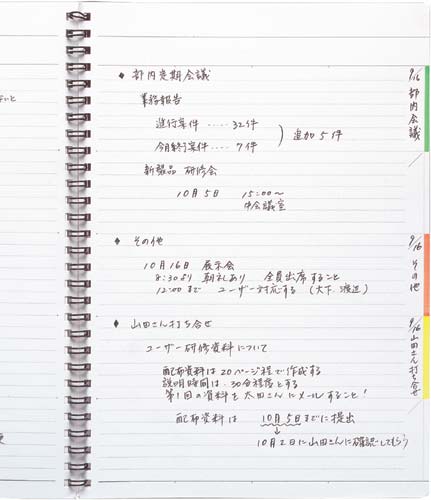 ◆ 部内定期会議
業務報告
進行案件 ····· 32件
今月終了案件 ···· 7件
追加5件
新製品 研修会
10月5日 15:00〜
中会議室
◆ その他
10月16日 展示会
8:30より 朝礼あり 全員出席すること
12:00まで ユーザー対応する (大下、渡辺)
◆ 山田さん打ち合せ
ユーザー研修資料について
配布資料は20ページ程で作成する
説明時間は30分程度とする
第1回の資料を太田さんにメールすること!
配布資料は 10月5日までに提出
10月2日に山田さんに確認してもらう
9/16 部内会議
9/16 その他
9/16 山田さん打ち合せ